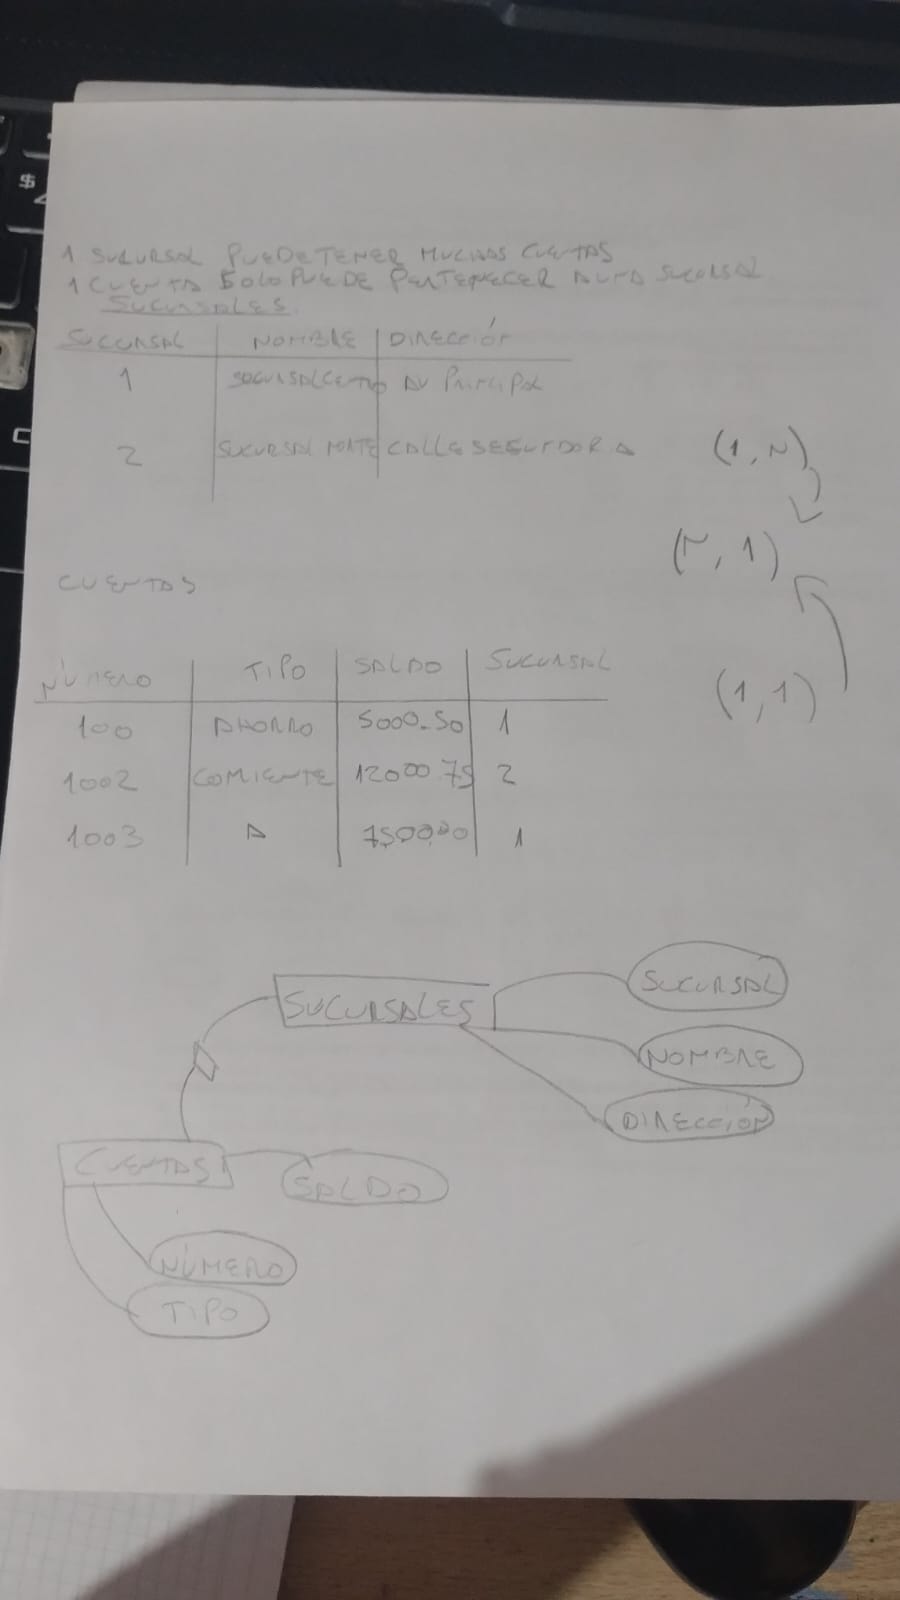 1 SUCURSAL PUEDE TENER MUCHAS CUENTAS
1 CUENTA SOLO PUEDE PERTENECER A UNA SUCURSAL
SUCURSALES
SUCURSAL NOMBRE DIRECCIÓN
1 SUCURSAL AV PRINCIPAL
2 SUCURSAL NORTE CALLE SEGUNDARIA
(1, N)
(N, 1)
CUENTAS
NÚMERO TIPO SALDO SUCURSAL
(1, 1)
100 AHORRO 5000.50 1
1002 CORRIENTE 12000.75 2
1003 A 7500.00 1
SUCURSALES
SUCURSAL
NOMBRE
DIRECCIÓN
CUENTAS
SALDO
NÚMERO
TIPO
$